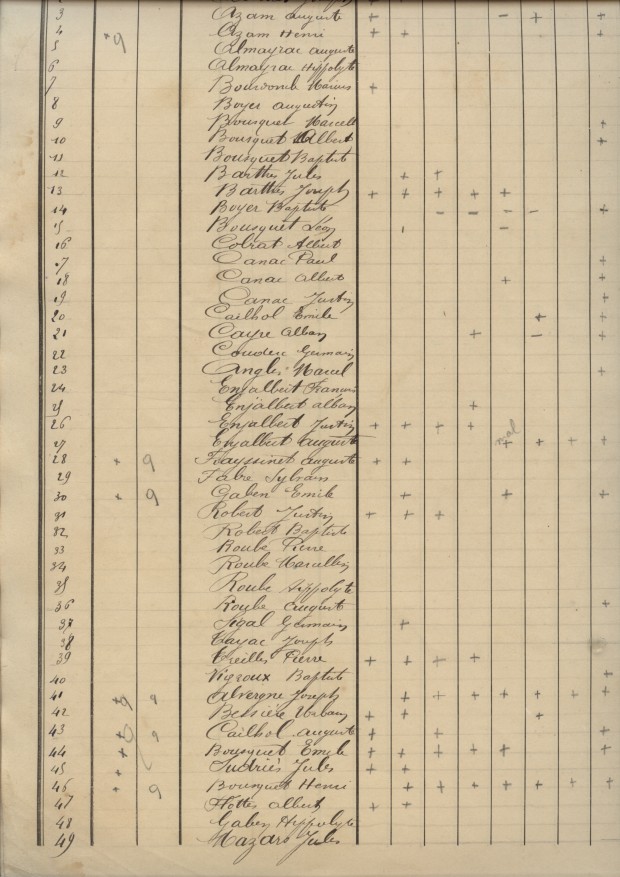 3 Azam Auguste + - +
4 +9 Azam Henri + +
5 Almayrac Auguste
6 Almayrac Hippolyte
7 Marius +
8 Boyer Augustin
9 Bousquet Marcel +
10 Bousquet Albert +
11 Bousquet Baptiste
12 Barthes Jules + +
13 Barthes Joseph + + + + +
14 Boyer Baptiste - - - - +
15 Bousquet Léon -
16 Colrat Albert
17 Canac Paul +
18 Canac Albert + +
19 Canac Justin +
20 Cailhol Emile + +
21 Cayre Alban + - +
22 Couderc Germain
23 Angles Marcel +
24 Enjalbert Francois
25 Enjalbert Alban +
26 Enjalbert Justin + + + +
27 Enjalbert Auguste + + + +
28 + 9 Fayssinet Auguste + +
29 Fabre Sylvain
30 + 9 Gaben Emile + + +
31 Robert Justin + + +
32 Robert Baptiste
33 Roube Pierre
34 Roube Marcellin
35 Roube Hippolyte
36 Roube Auguste +
37 Sigal Germain +
38 Cayac Joseph
39 Treilles Pierre + + + +
40 Vigroux Baptiste +
41 + 9 9 Alvergne Joseph + + + + + + +
42 + Bessière Urbain + + +
43 + 9 Cailhol Auguste + + +
44 + Bousquet Emile + + + + + +
45 + Sudriès Jules + +
46 + 9 Bousquet Henri + + + + + + +
47 Flottes Albert + +
48 Gaben Hippolyte
49 Mazars Jules